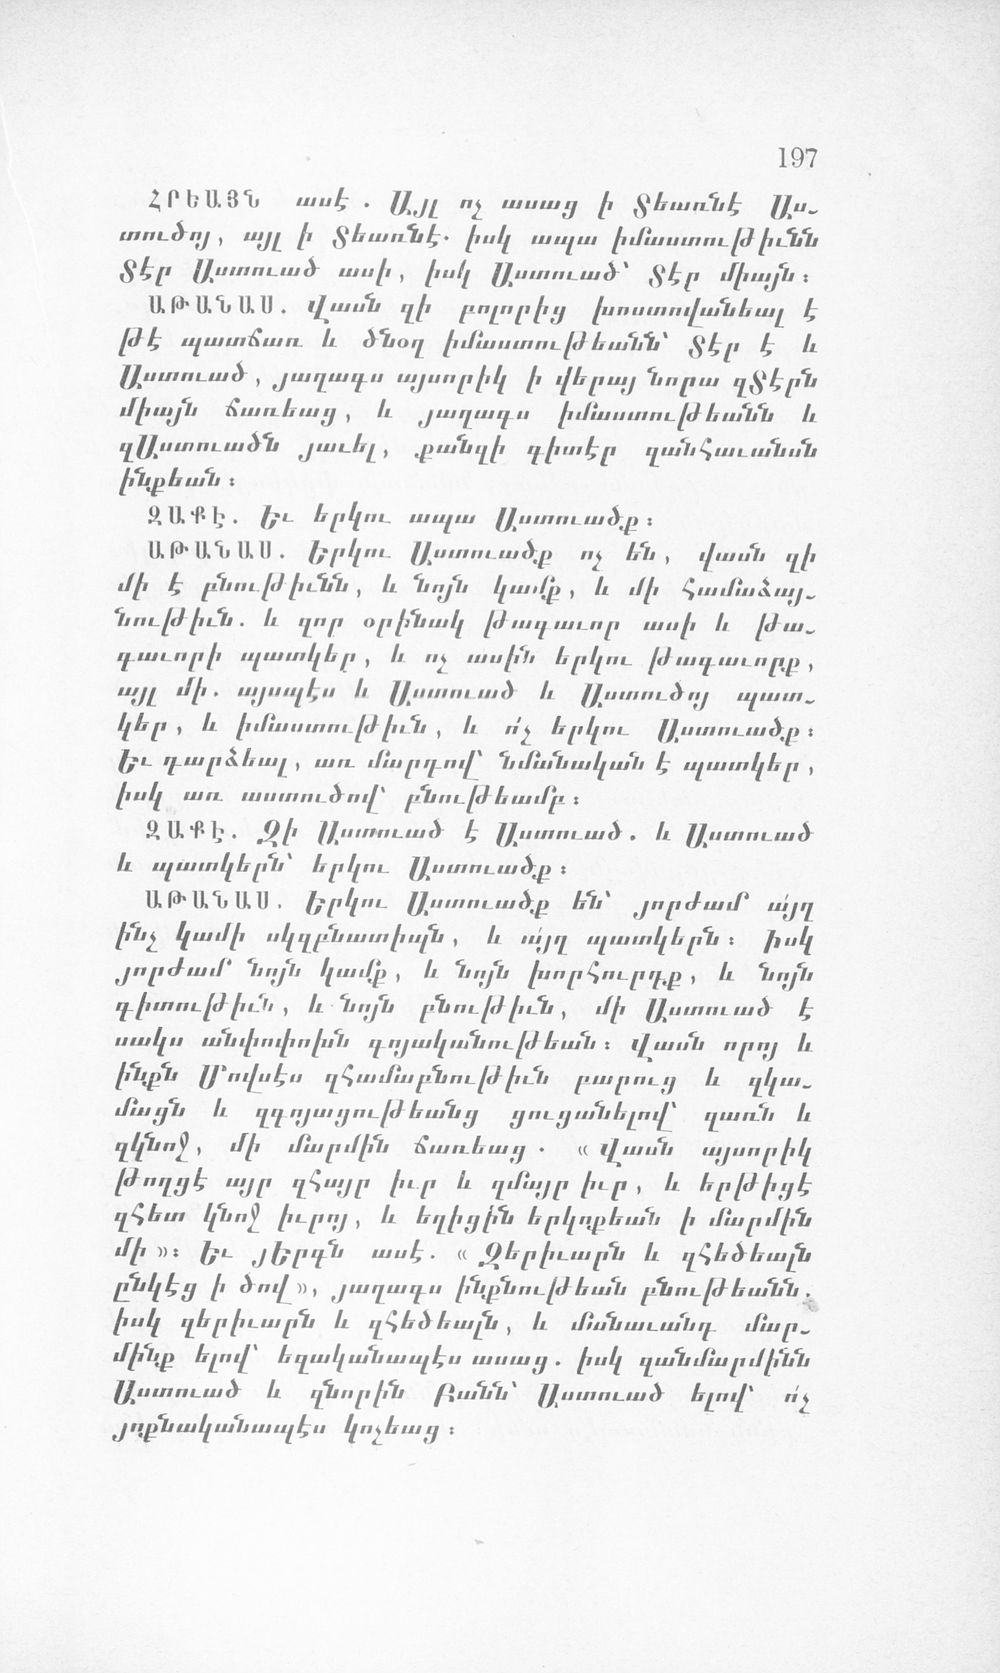 197
ՀՐԵԱՅՆ ասէ. Այլ ոչ ասաց ի Տեառնէ Աս-
տուծոյ, այլ ի Տեառնէ. իսկ ապա իմաստութիւնն
Տէր Աստուած ասի, իսկ Աստուած՝ Տէր միայն:
ԱԹԱՆԱՍ. Վասն զի բոլորից խոստովանեալ է
թէ պատճառ և ծնօղ իմաստութեանն՝ Տէր է և
Աստուած, յաղագս այսորիկ ի վերայ նորա զՏէրն
միայն ճառեաց, և յաղագս իմաստութեանն և
զԱստուածն յաւել, քանզի գիտէր զանհաւանսն
ինքեան:
ԶԱՔԷ. Եւ երկու ապա Աստուածք:
ԱԹԱՆԱՍ. Երկու Աստուածք ոչ են, վասն զի
մի է բնութիւնն, և նոյն կամք, և մի համաձայ-
նութիւն. և զոր օրինակ թագաւոր ասի և թա-
գաւորի պատկեր, և ոչ ասին երկու թագաւորք,
այլ մի. այսպէս և Աստուած և Աստուծոյ պատ-
կեր, և իմաստութիւն, և ո՛չ երկու Աստուածք:
Եւ դարձեալ, առ մարդով՝ նմանական է պատկեր,
իսկ առ աստուծով՝ բնութեամբ:
ԶԱՔԷ. Զի Աստուած է Աստուած. և Աստուած
և պատկերն՝ երկու Աստուածք:
ԱԹԱՆԱՍ. Երկու Աստուածք են՝ յորժամ ա՛յղ
ինչ կամի սկզբնատիպն, և ա՛յղ պատկերն: Իսկ
յորժամ նոյն կամք, և նոյն խորհուրդք, և նոյն
գիտութիւն, և նոյն բնութիւն, մի Աստուած է
սակս անփոփոխն գոյականութեան: Վասն որոյ և
ինքն Մովսէս զհամաբնութիւն բարուց և զկա-
մացն և զգոյացութեանց ցուցանելով՝ զառն և
զկնոջ, մի մարմին ճառեաց. «Վասն այսորիկ
թողցէ այր զհայր իւր և զմայր իւր, և երթիցէ
զհետ կնոջ իւրոյ, և եղիցին երկոքեան ի մարմին
մի»: Եւ յԵրգն ասէ. «Զերիւարն և զհեծեալն
ընկէց ի ծով», յաղագս ինքնութեան բնութեանն.
իսկ զերիւարն և զհեծեալն, և մանաւանդ մար-
մինք ելով՝ եզականապէս ասաց. իսկ զանմարմինն
Աստուած և զնորին Բանն՝ Աստուած ելով՝ ո՛չ
յոքնականապէս կոչեաց: